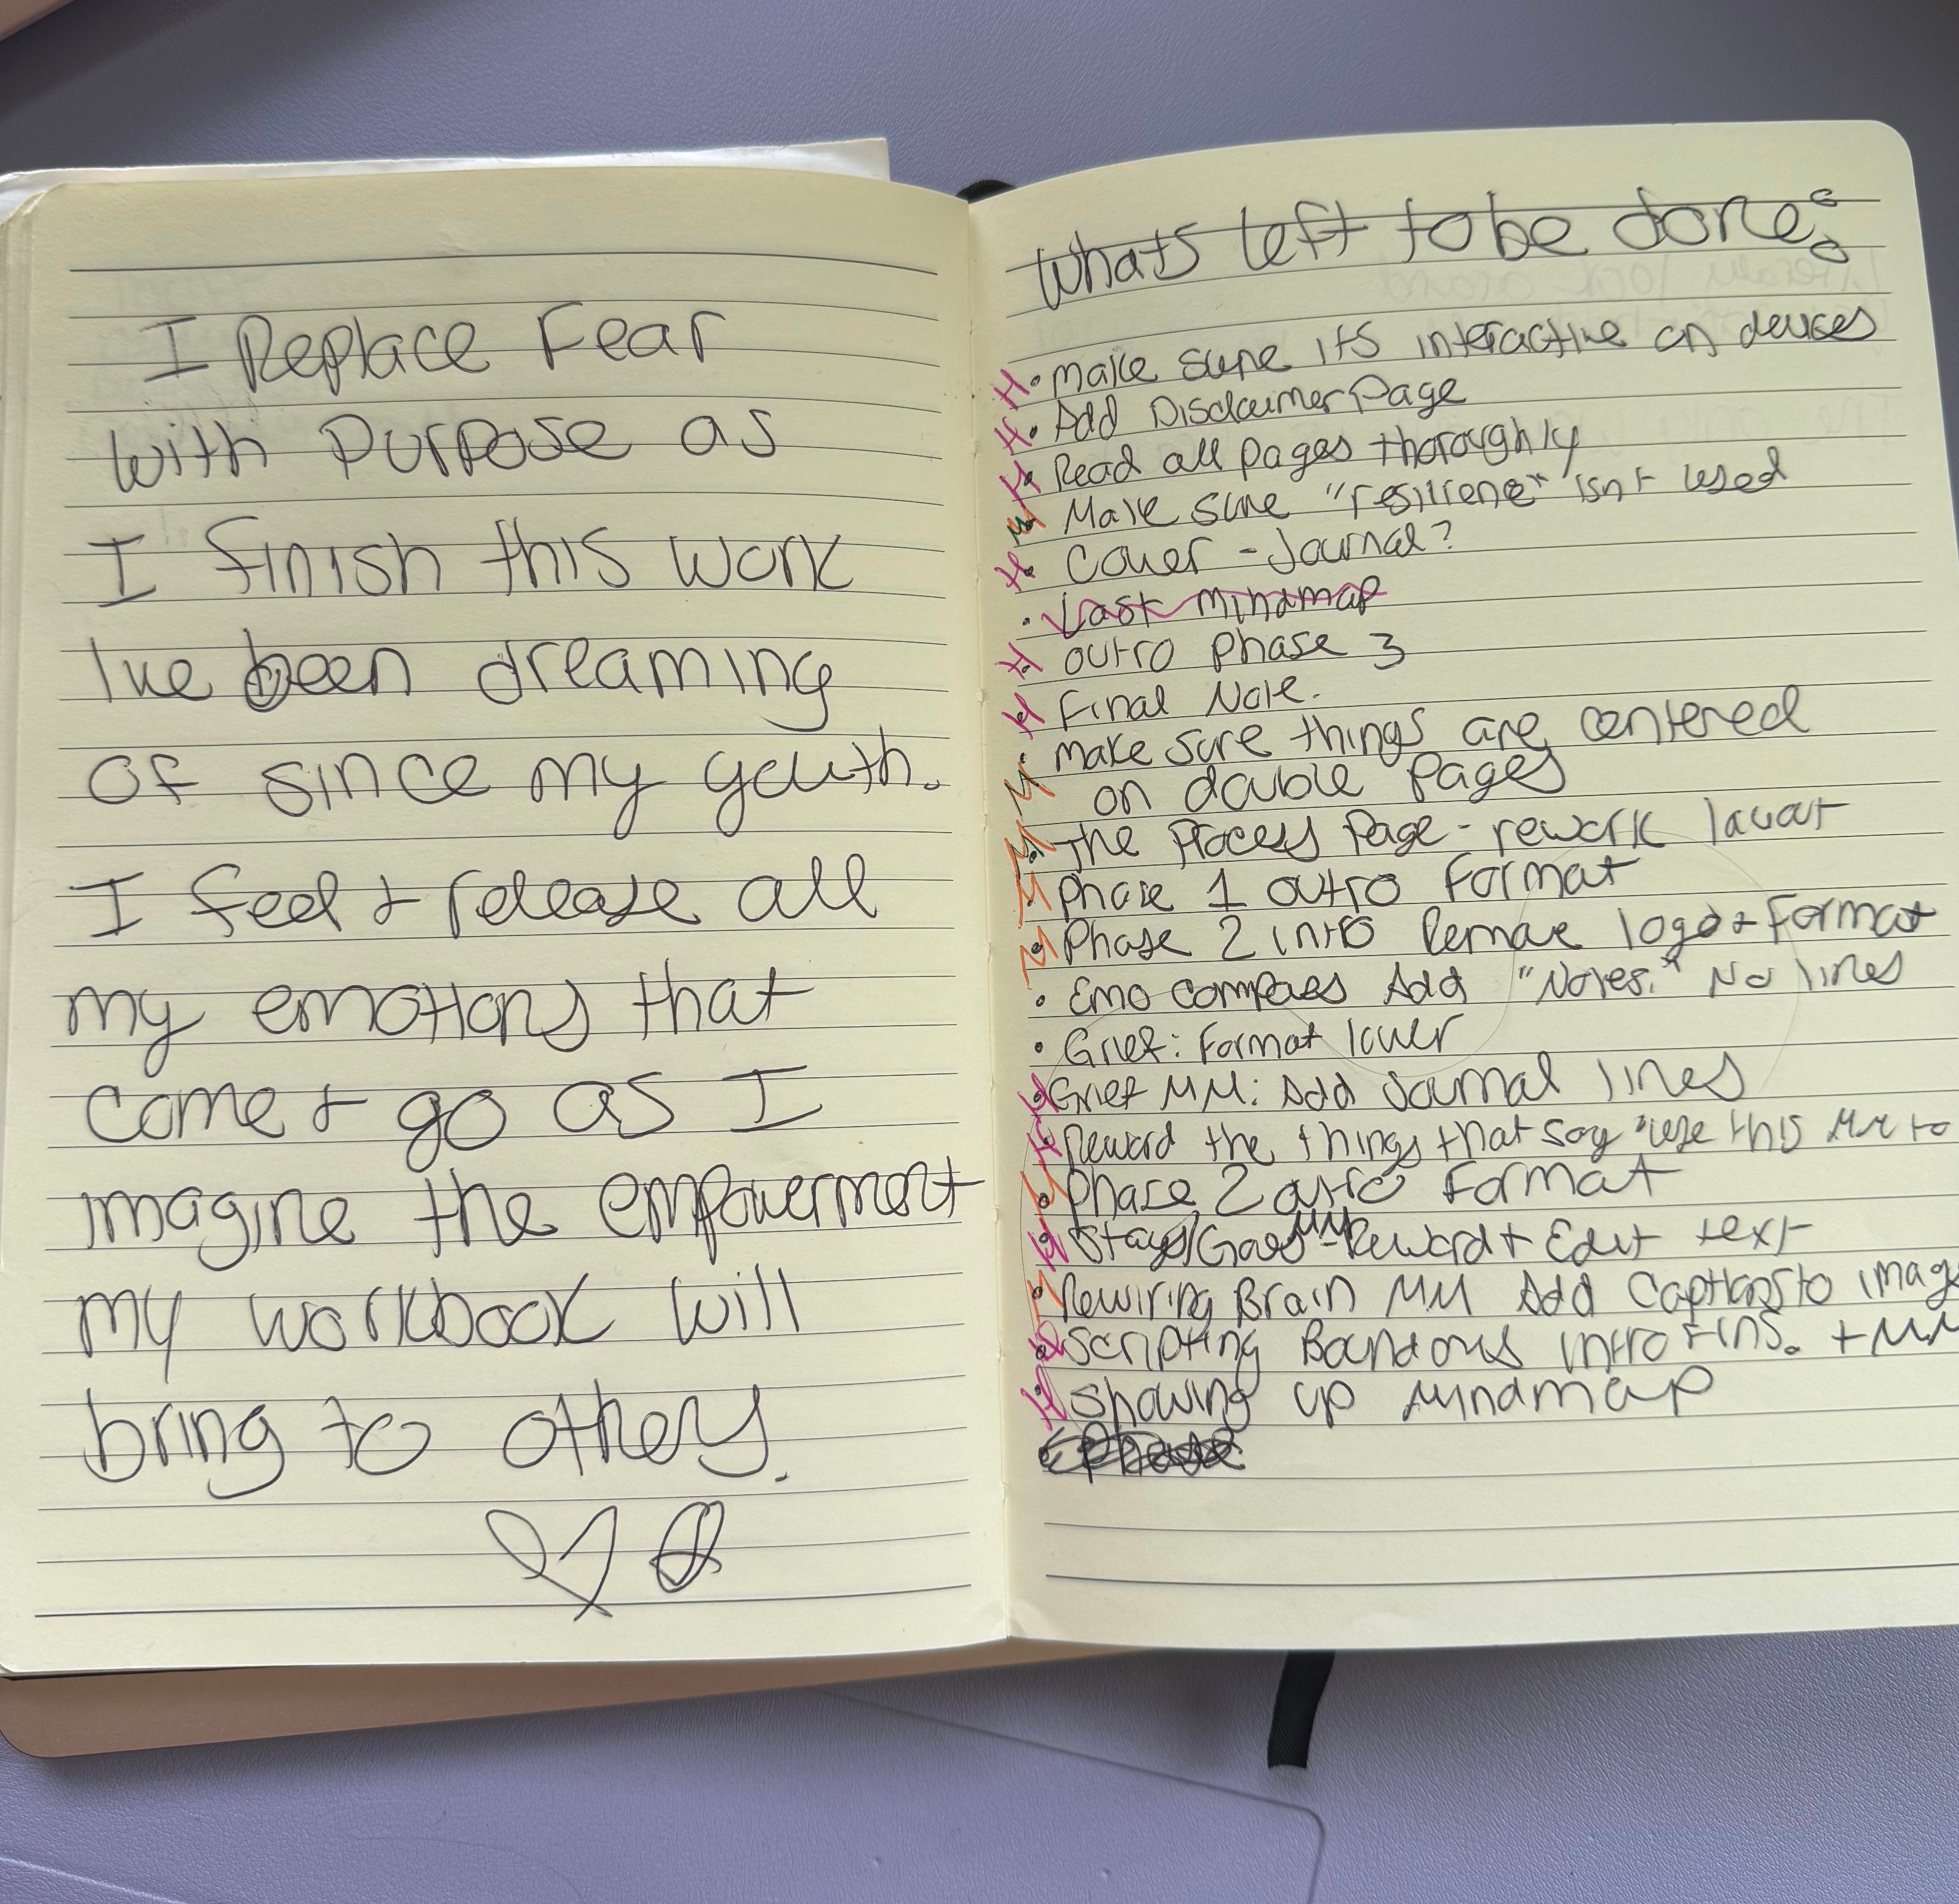 I Replace Fear
with Purpose as
I finish this work
Ive been dreaming
of since my youth.
I feel + release all
my emotions that
come + go as I
imagine the empowerment
my workbook will
bring to others.
Whats left to be done:
H • Make sure its interactive on devices
H • Add Disclaimer Page
H • Read all pages thoroughly
M • Make sure "resilience" isnt used
H • Cover - Journal?
• Last mindmap
H • outro phase 3
H • Final Note.
M • make sure things are centered
on double pages
M • The Process Page - rework layout
M • Phase 1 outro format
M • Phase 2 intro Remove logo + Format
• Emo compass Add "Notes." No lines
• Grief: Format lower
H • Grief MM: Add Journal lines
H • Reword the things that say "use this MM to
M • Phase 2 outro Format
H • Stays/Goes MM - Reword + Edit text
M • Rewiring Brain MM Add Captions to imag
H • Scripting intro + ins. + MM
H • Showing up mindmap
• Phase